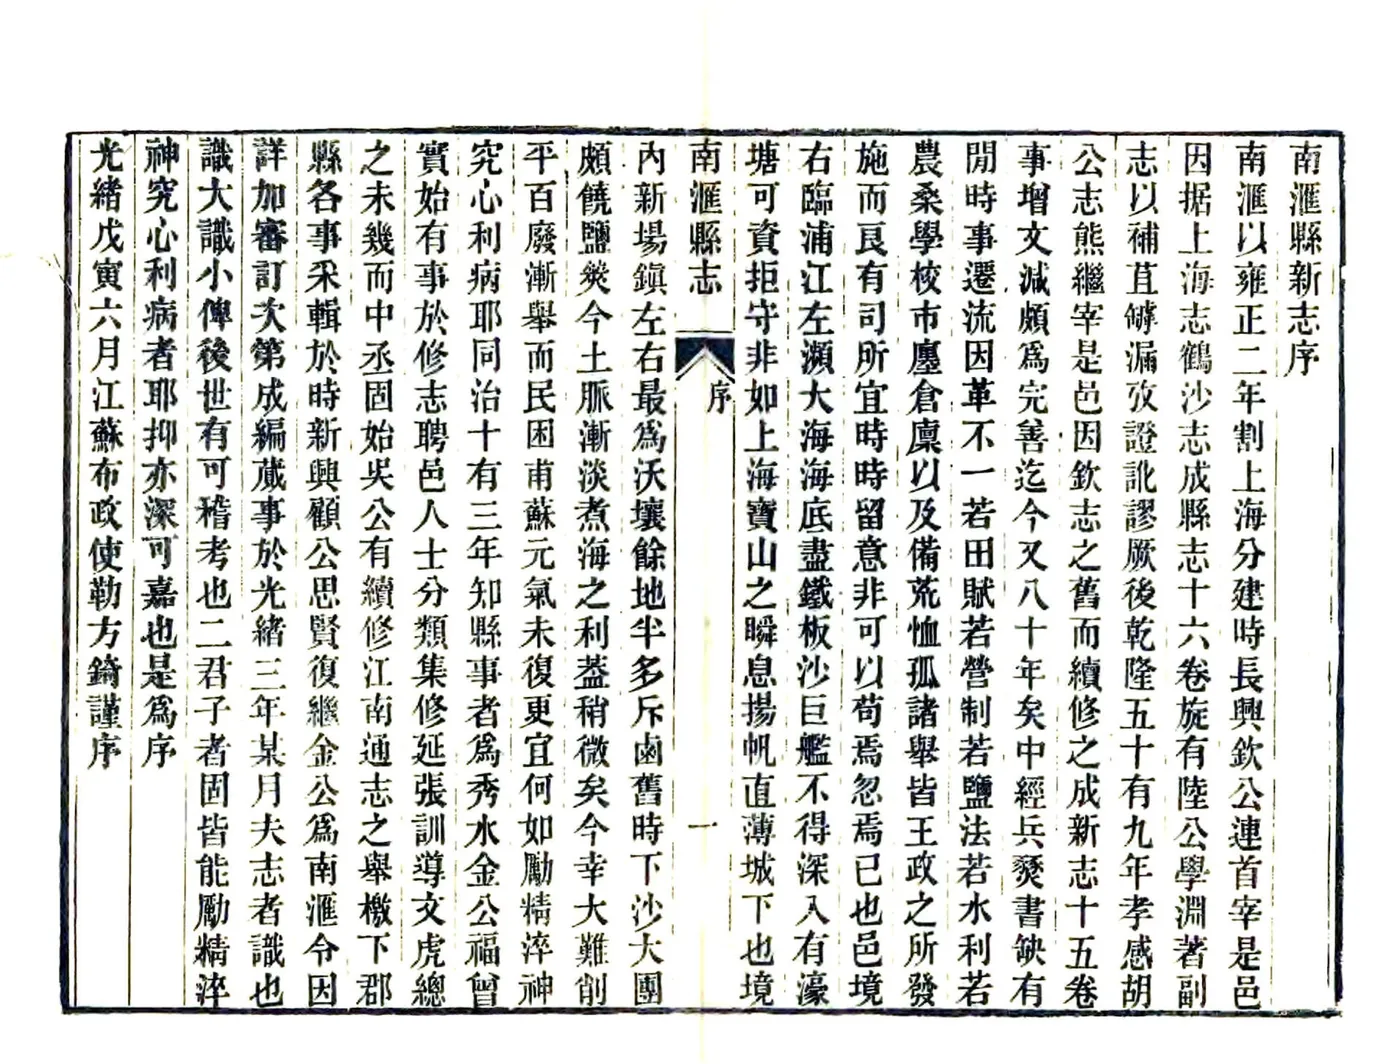 南滙縣新志序
南滙以雍正二年割上海分建時長興欽公連首宰是邑
因据上海志鶴沙志成縣志十六卷旋有陸公學淵著副
志以補苴罅漏攷證訛謬厥後乾隆五十有九年孝感胡
公志熊繼宰是邑因欽志之舊而續修之成新志十五卷
事增文減頗爲完善迄今又八十年矣中經兵燹書缺有
閒時事遷流因革不一若田賦若營制若鹽法若水利若
農桑學校市廛倉廩以及備荒恤孤諸舉皆王政之所發
施而良有司所宜時時留意非可以苟焉忽焉已也邑境
右臨浦江左瀕大海海底盡鐵板沙巨艦不得深入有濠
塘可資拒守非如上海寶山之瞬息揚帆直薄城下也境
南滙縣志
序
一
內新場鎮左右最爲沃壤餘地半多斥鹵舊時下沙大團
頗饒鹽燓今土脈漸淡煮海之利葢稍微矣今幸大難削
平百廢漸舉而民困甫蘇元氣未復更宜何如勵精淬神
究心利病耶同治十有三年知縣事者爲秀水金公福曾
實始有事於修志聘邑人士分類集修延張訓導文虎總
之未幾而中丞固始吳公有續修江南通志之舉檄下郡
縣各事采輯於時新興顧公思賢復繼金公爲南滙令因
詳加審訂次第成編蕆事於光緒三年某月夫志者識也
識大識小俾後世有可稽考也二君子者固皆能勵精淬
神究心利病者耶抑亦深可嘉也是爲序
光緒戊寅六月江蘇布政使勒方錡謹序